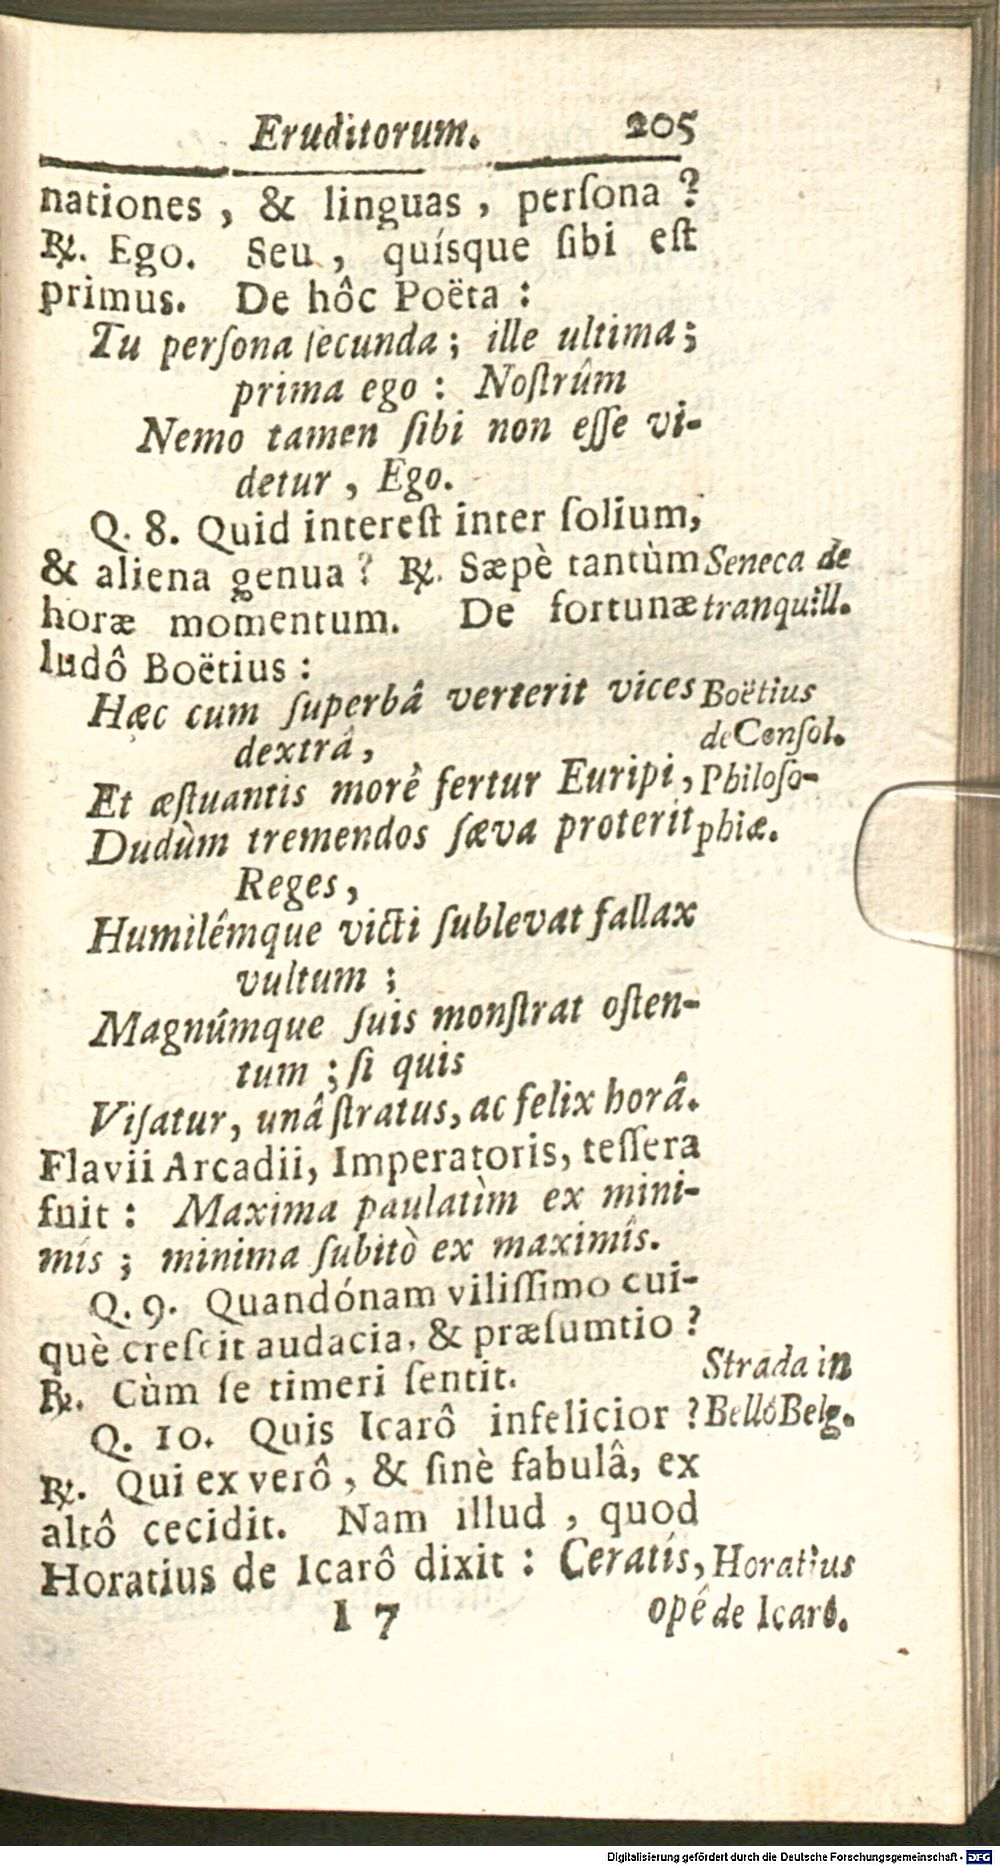 Eruditorum. 205
nationes, & linguas, perſona?
℞. Ego. Seu, quísque ſibi eſt
primus. De hôc Poëta:
Tu perſona ſecunda; ille ultima;
prima ego: Noſtrûm
Nemo tamen ſibi non eſſe vi-
detur, Ego.
Q. 8. Quid intereſt inter ſolium,
& aliena genua? ℞. Sæpè tantùm
Seneca de
horæ momentum. De fortunæ
tranquill.
ludô Boëtius:
Hæc cum ſuperbâ verterit vices
Boëtius
dextrâ,
de Conſol.
Et æſtuantis morè fertur Euripi,
Philoſo-
Dudùm tremendos ſæva proterit
phiæ.
Reges,
Humilêmque victi ſublevat fallax
vultum;
Magnúmque ſuis monſtrat oſten-
tum; ſi quis
Viſatur, unâ ſtratus, ac felix horâ.
Flavii Arcadii, Imperatoris, teſſera
fuit: Maxima paulatìm ex mini-
mis; minima ſubitò ex maximîs.
Q. 9. Quandónam viliſſimo cui-
què creſcit audacia, & præſumtio?
℞. Cùm ſe timeri ſentit.
Strada in
Q. 10. Quis Icarô infelicior?
Bellô Belg.
℞. Qui ex verô, & ſinè fabulâ, ex
altô cecidit. Nam illud, quod
Horatius de Icarô dixit: Ceratis,
Horatius
I 7 opé
de Icarô.
Digitalisierung gefördert durch die Deutsche Forschungsgemeinschaft - DFG